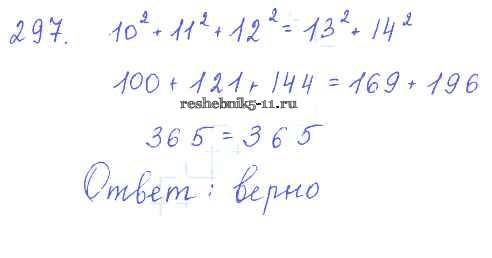 297. 10² + 11² + 12² = 13² + 14²
100 + 121 + 144 = 169 + 196
reshebnik5-11.ru
365 = 365
Ответ: верно